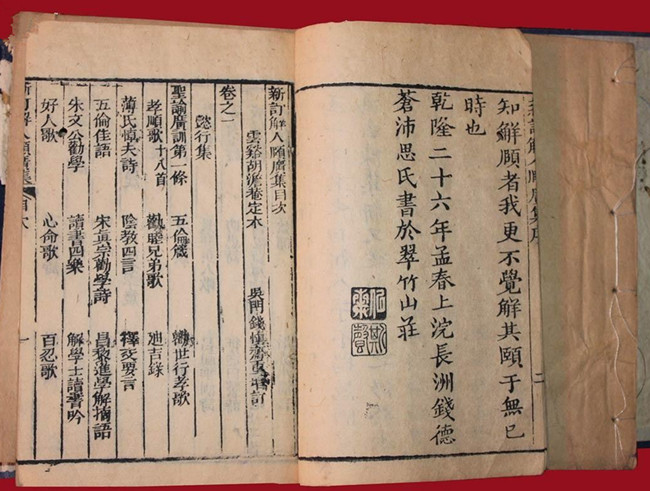 新訂解人頤廣集序 二
知觧頤者我更不覺解其頤于無已
時也
乾隆二十六年孟春上浣長洲錢德
蒼沛思氏書於翠竹山莊
新訂解人頤廣集目次
雲谿胡澹菴定本 吳門錢慎齋重增訂
卷之一
懿行集
聖諭廣訓第一條 五倫箴 勸世行孝歌
孝順歌十八首 勸睦兄弟歌 迪吉錄
薄氏慎夫詩 陰教四言 交要言
五倫佳語 宋真宗勸學詩 昌黎進學解摘語
朱文公勸學 讀書四樂 解學士讀書吟
好人歌 心命歌 百忍歌
新訂解人頤廣集 目次 一